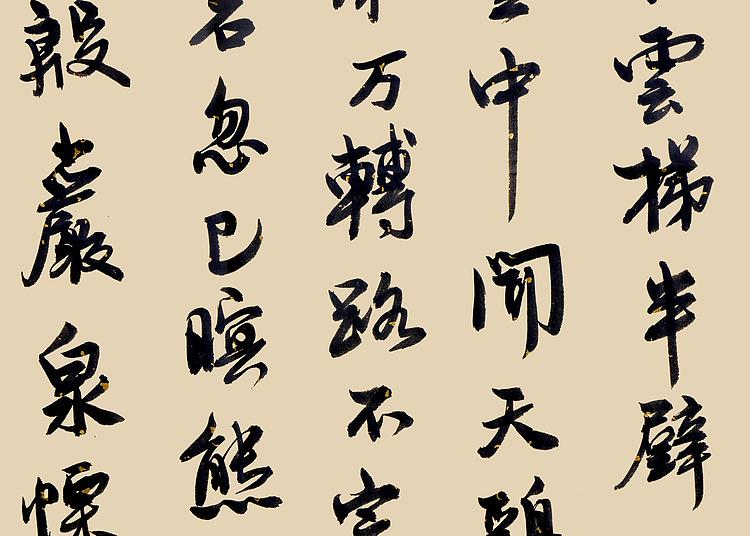 雲梯半壁
中聞天
万轉路不定
石忽已暝熊
殷巖泉慄